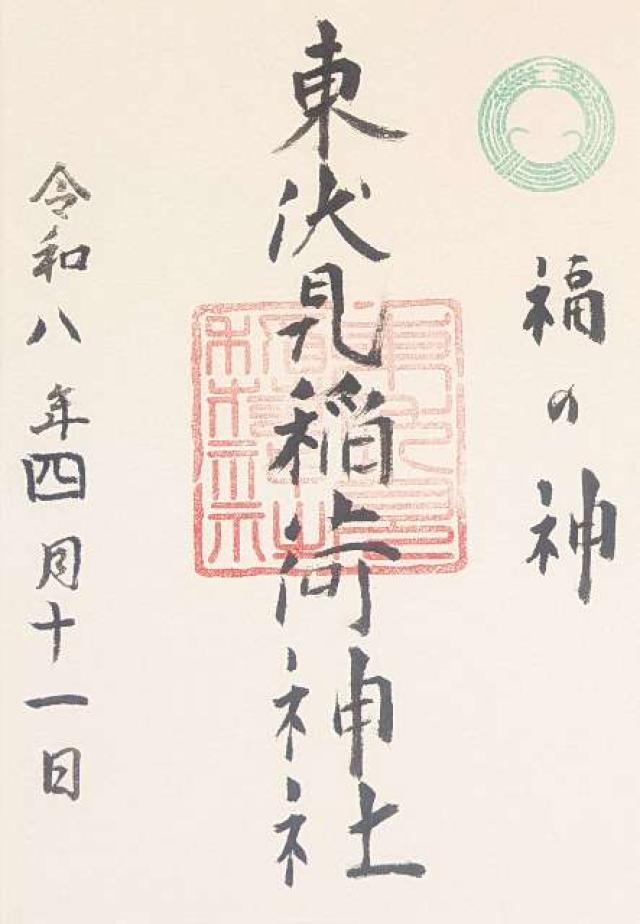 福の神
東伏見稲荷神社
令和八年四月十一日